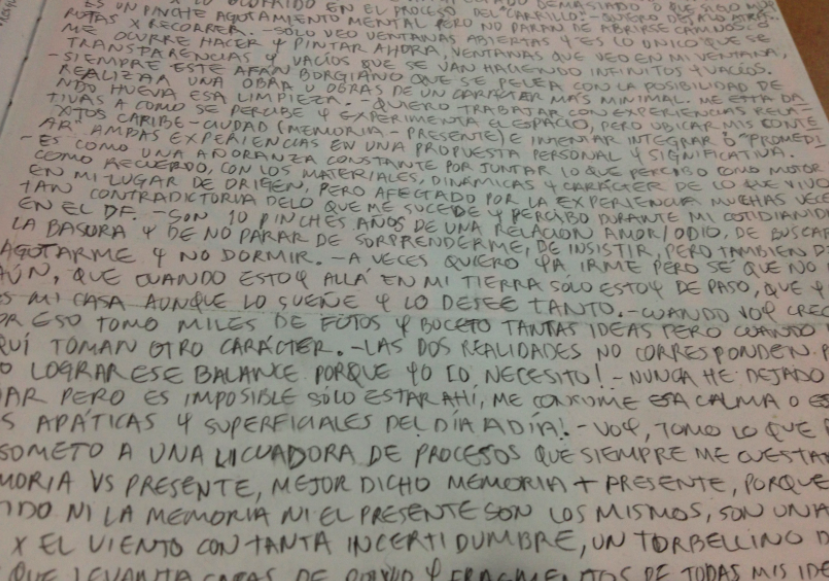 DEMASIADO O QUE SIGO
ES UN PINCHE AGOTAMIENTO MENTAL PERO NO PARAN DE ABRIRSE CAMINOS
RUTAS X RECORRER.-SOLO VEO VENTANAS ABIERTAS Y ES LO ÚNICO QUE SE
ME OCURRE HACER Y PINTAR AHORA, VENTANAS QUE VEO EN MI VENTANA,
TRANSPARENCIAS Y VACÍOS QUE SE VAN HACIENDO INFINITOS Y VACÍOS.
-SIEMPRE ESTE AFÁN BORGIANO QUE SE PELEA CON LA POSIBILIDAD DE
REALIZAR UNA OBRA U OBRAS DE UN CARÁCTER MÁS MINIMAL. ME ESTA DA
NDO HUEVA ESA LIMPIEZA.-QUIERO TRABAJAR CON EXPERIENCIAS RELA
TIVAS A COMO SE PERCIBE Y EXPERIMENTA EL ESPACIO, PERO UBICAR MIS CONTE
XTOS CARIBE-CIUDAD (MEMORIA-PRESENTE) E INTENTAR INTEGRAR O "PROMEDI
AR" AMBAS EXPERIENCIAS EN UNA PROPUESTA PERSONAL Y SIGNIFICATIVA.
-ES COMO UNA AÑORANZA CONSTANTE POR JUNTAR LO QUE PERCIBO COMO MOTOR
COMO RECUERDO, CON LOS MATERIALES, DINÁMICAS Y CARÁCTER DE LO QUE VIVO
EN MI LUGAR DE ORIGEN, PERO AFECTADO POR LA EXPERIENCIA MUCHAS VECE
TAN CONTRADICTORIA DE LO QUE ME SUCEDE Y PERCIBO DURANTE MI COTIDIANID
EN EL DF.-SON 10 PINCHES AÑOS DE UNA RELACIÓN AMOR/ODIO, DE BUSCAR
LA BASURA Y DE NO PARAR DE SORPRENDERME, DE INSISTIR, PERO TAMBIEN D
AGOTARME Y NO DORMIR.-A VECES QUIERO YA IRME PERO SÉ QUE NO
AÚN, QUE CUANDO ESTOY ALLÁ EN MI TIERRA SÓLO ESTOY DE PASO, QUE Y
ES MI CASA AUNQUE LO SUEÑE Y LO DESEE TANTO.-CUANDO VOY CREO
OR ESO TOMO MILES DE FOTOS Y BOCETO TANTAS IDEAS PERO CUANDO
QUÍ TOMAN OTRO CARÁCTER.-LAS DOS REALIDADES NO CORRESPONDEN. P
O LOGRAR ESE BALANCE PORQUE YO LO NECESITO!-NUNCA HE DEJADO
AR PERO ES IMPOSIBLE SÓLO ESTAR AHÍ, ME CONSUME ESA CALMA O ES
S APÁTICAS Y SUPERFICIALES DEL DÍA A DÍA!-VOY, TOMO LO QUE
SOMETO A UNA LICUADORA DE PROCESOS QUE SIEMPRE ME CUESTAN
MORIA VS PRESENTE, MEJOR DICHO MEMORIA + PRESENTE, PORQUE
TIDO NI LA MEMORIA NI EL PRESENTE SON LOS MISMOS, SON UNA
X EL VIENTO CON TANTA INCERTIDUMBRE, UN TORBELLINO D
QUE LEVANTA CAPAS DE POLVO Y FRAGMENTOS DE TODAS MIS IDE